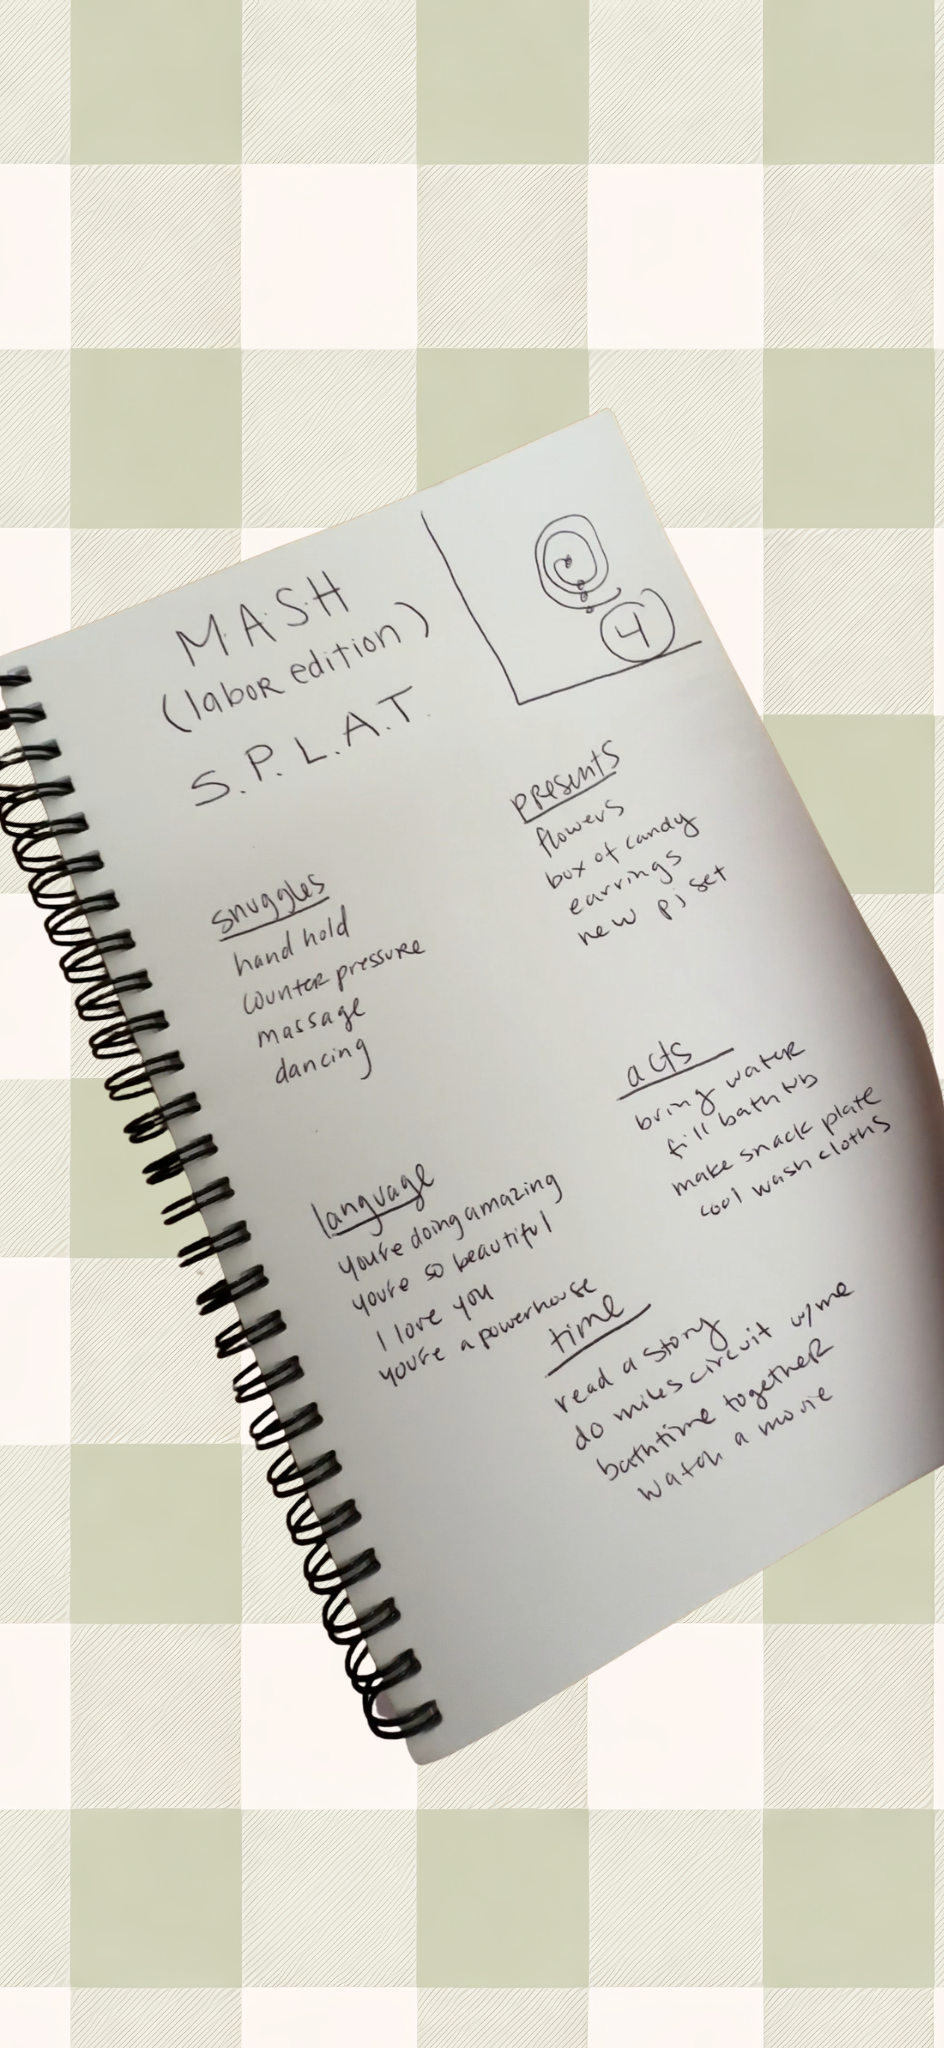 M.A.S.H
(labor edition)
S.P.L.A.T.
4
snuggles
hand hold
counter pressure
massage
dancing
presents
flowers
box of candy
earrings
new pj set
language
you're doing amazing
you're so beautiful
I love you
you're a powerhouse
acts
bring water
fill bathtub
make snack plate
cool wash cloths
time
read a story
do miles circuit w/me
bathtime together
watch a movie